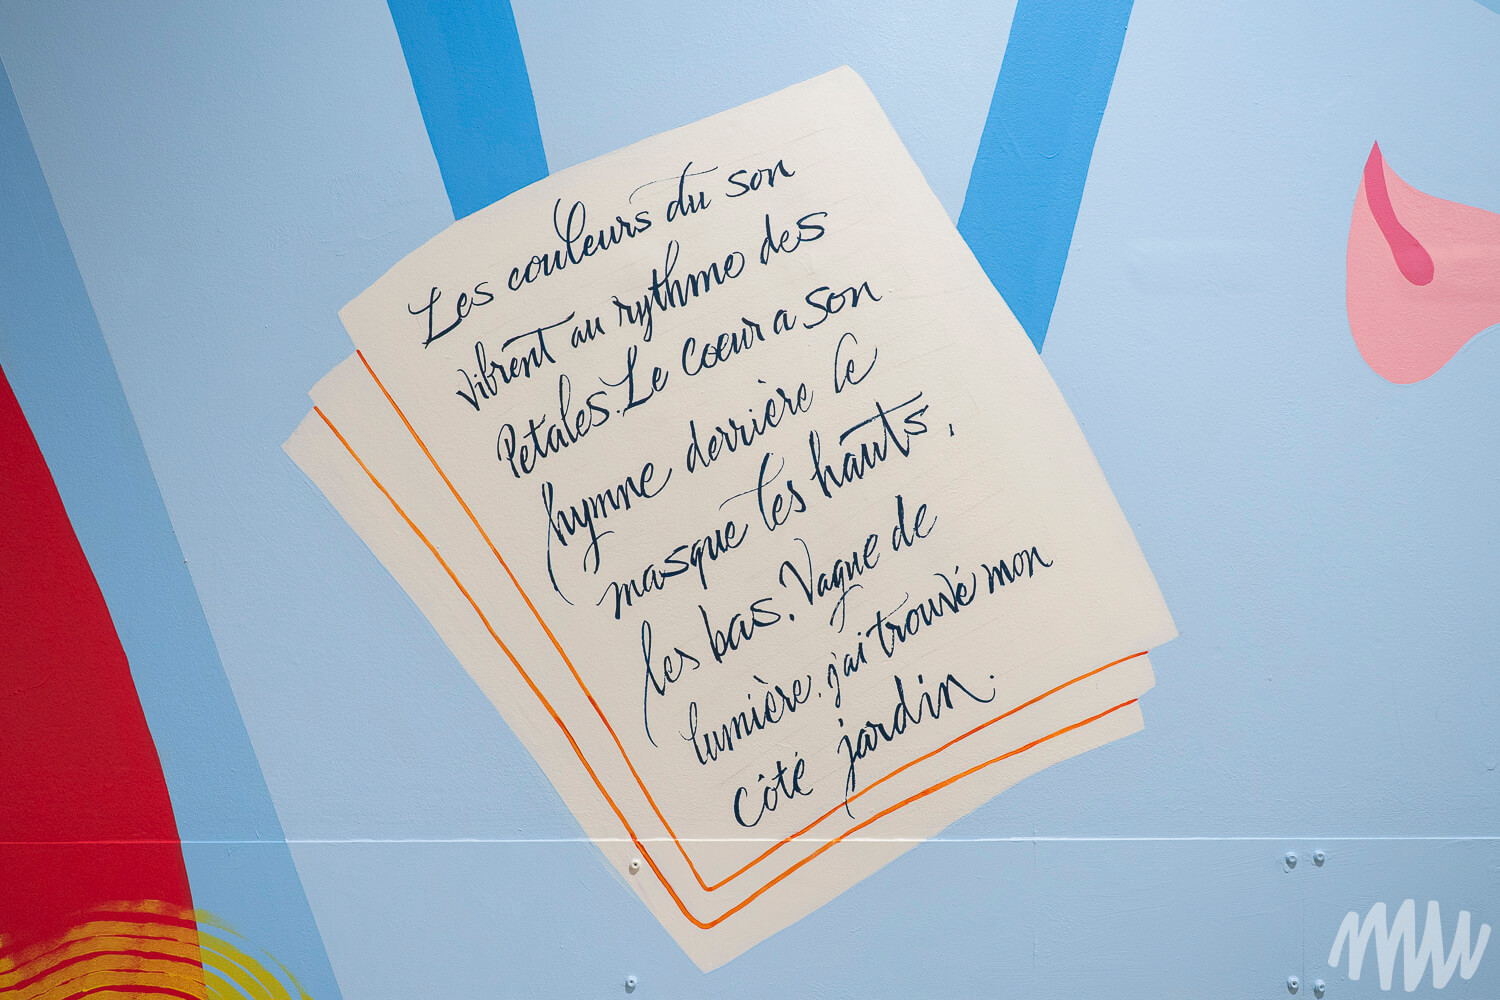 Les couleurs du son
vibrent au rythme des
Petales. Le coeur a son
hymne derrière le
masque les hauts,
les bas. Vague de
lumière. j'ai trouvé mon
côté jardin.
MW